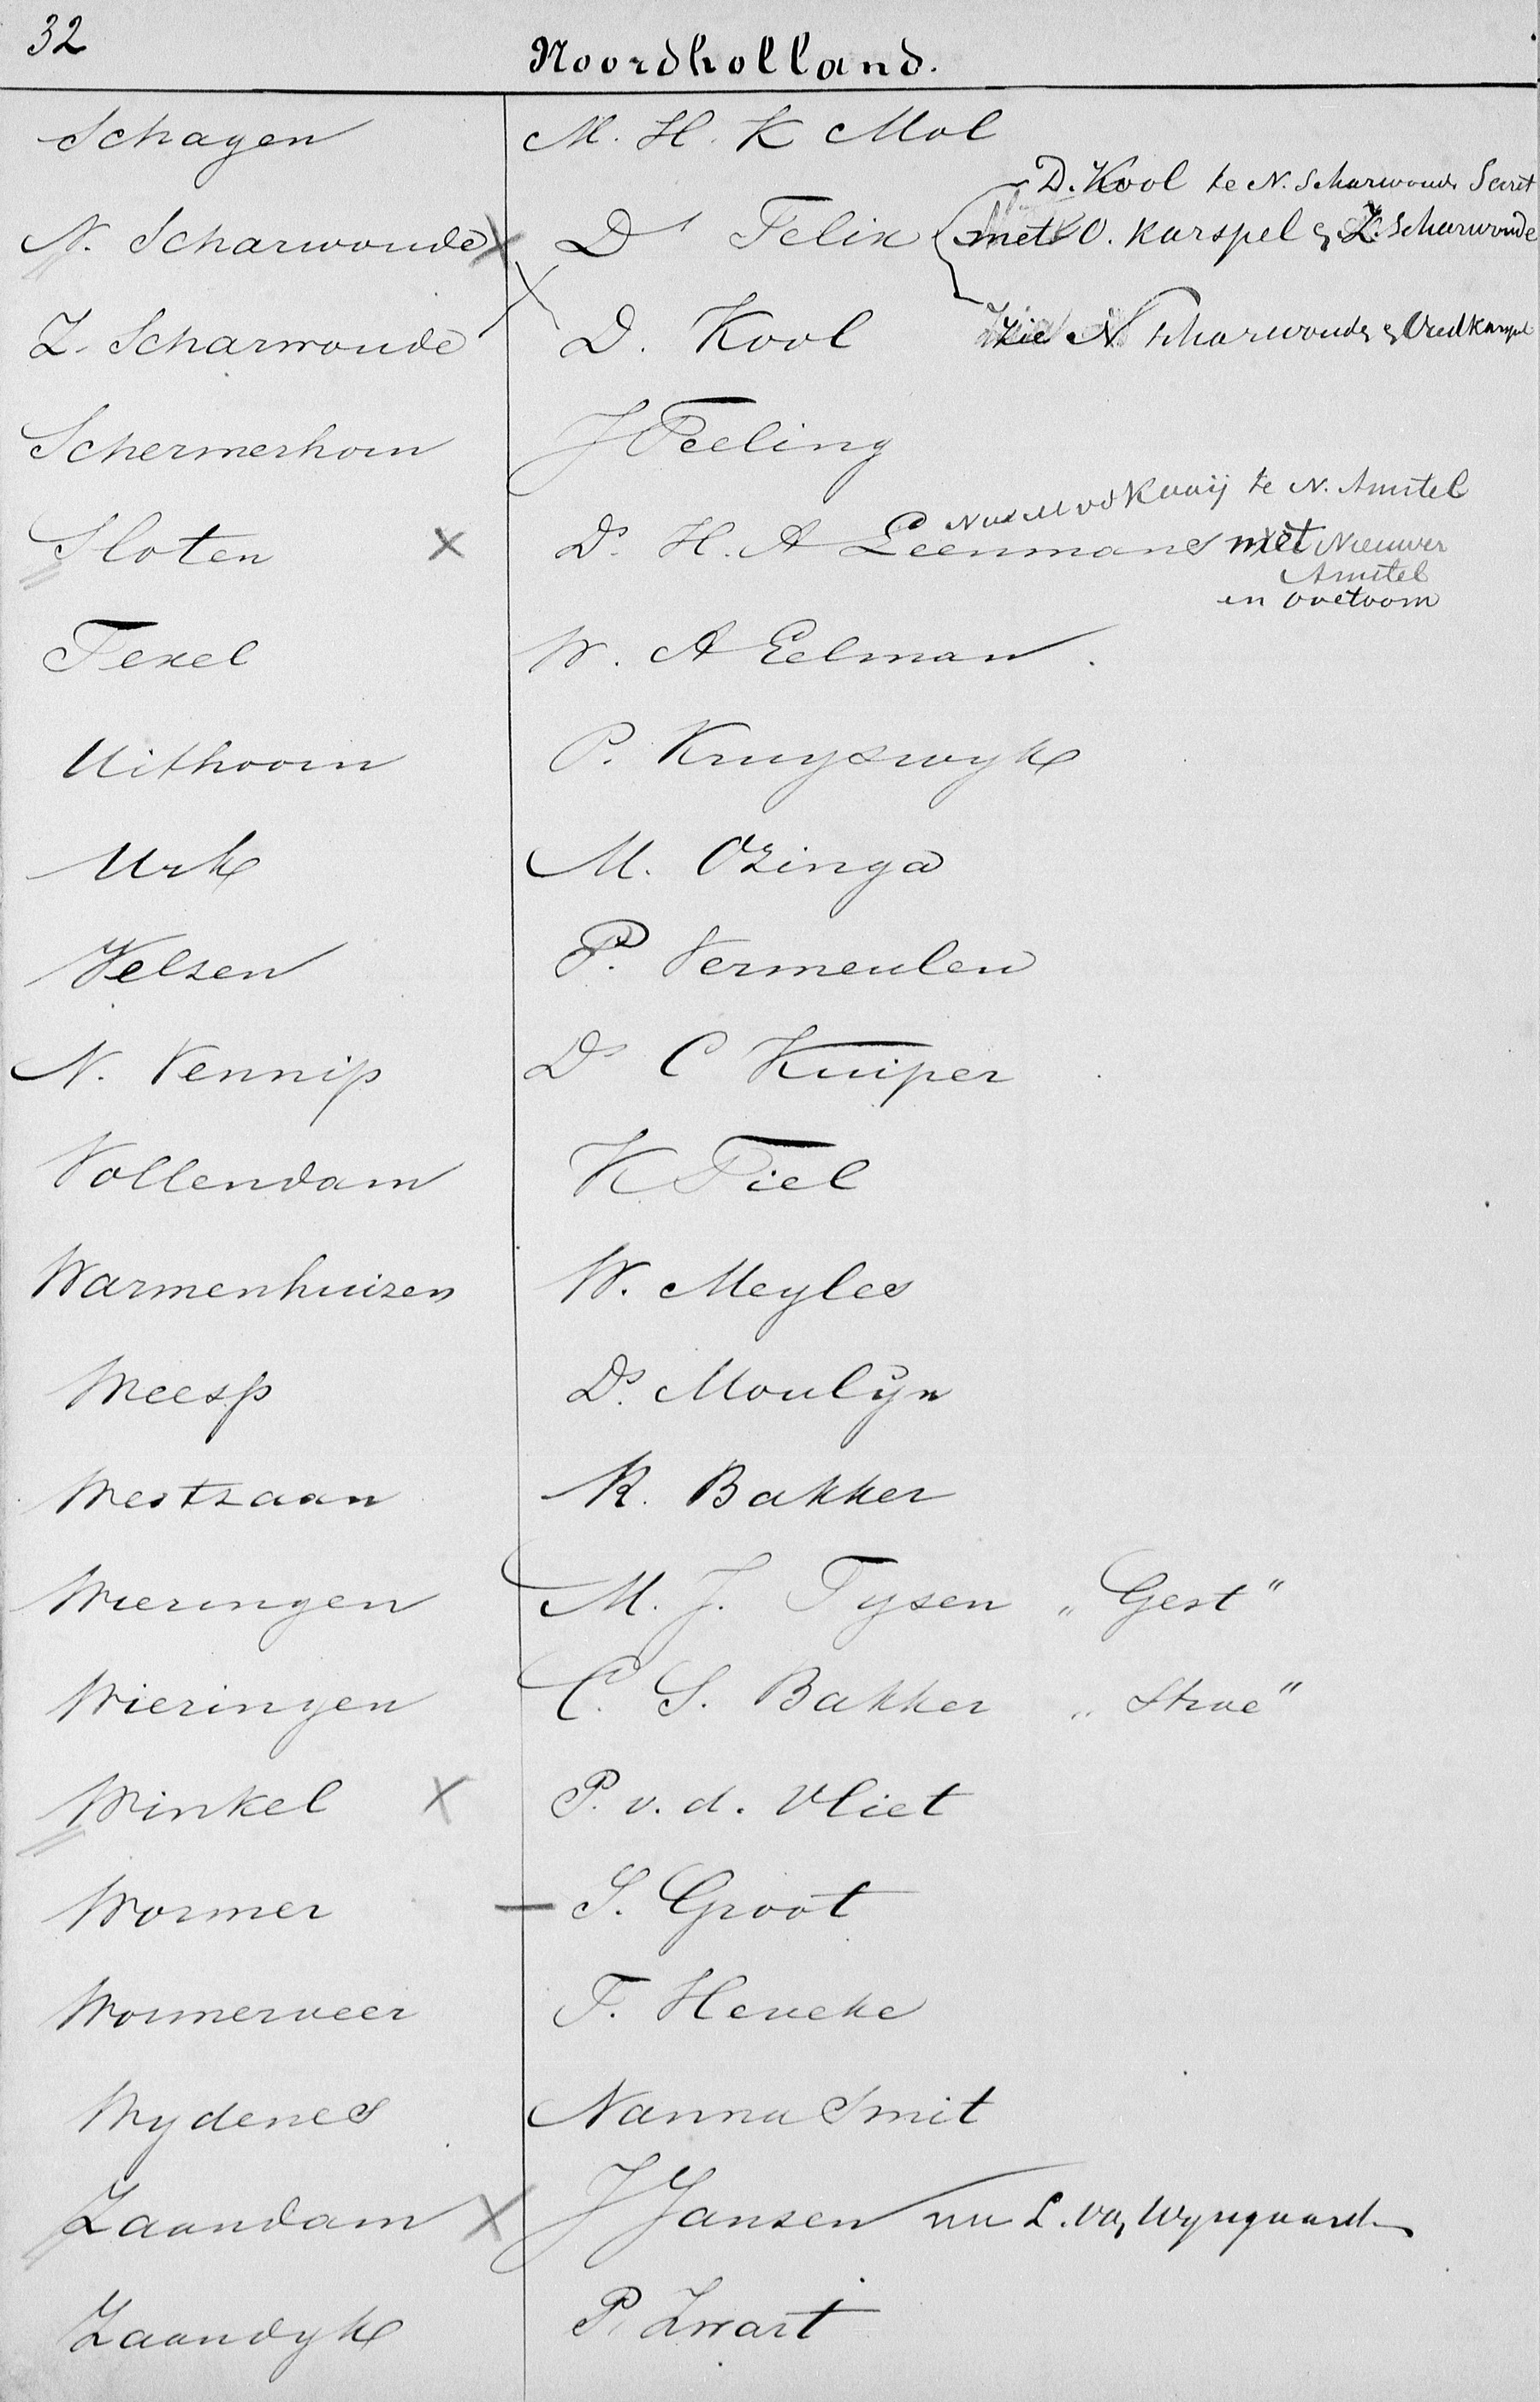 32
Noordholland.
Schagen M. H. K Mol
D. Kool te N. Scharwoude Secret
N. Scharwoude x Ds Felix met O. Karspel & Z. Scharwoude
Z. Scharwoude D. Kool Zie N Scharwoude & Oudkarspel
Schermerhorn J Teeling
te N. Amstel
Sloten x Ds. H. A Leenmans met Nieuwer
Amstel
en Overtoom
Texel W. A Eelman.
Uithoorn P. Kruyswyk
Urk M. Ozinga
Velsen P. Vermeulen
N. Vennip Ds C Kuiper
Vollendam K Tiel
Warmenhuizen W. Meyles
Weesp Ds. Moulyn
Westzaan K. Bakker
Wieringen M. J. Tysen „Gest"
Wieringen C. S. Bakker „Stroe"
Winkel x P. v. d. Vliet
Wormer — S. Groot
Wormerveer F. Heneke
Wydenes Nanna Smit
Zaandam x J Jansen nu L. v. Wyngaarden
Zaandyk P. Zwart